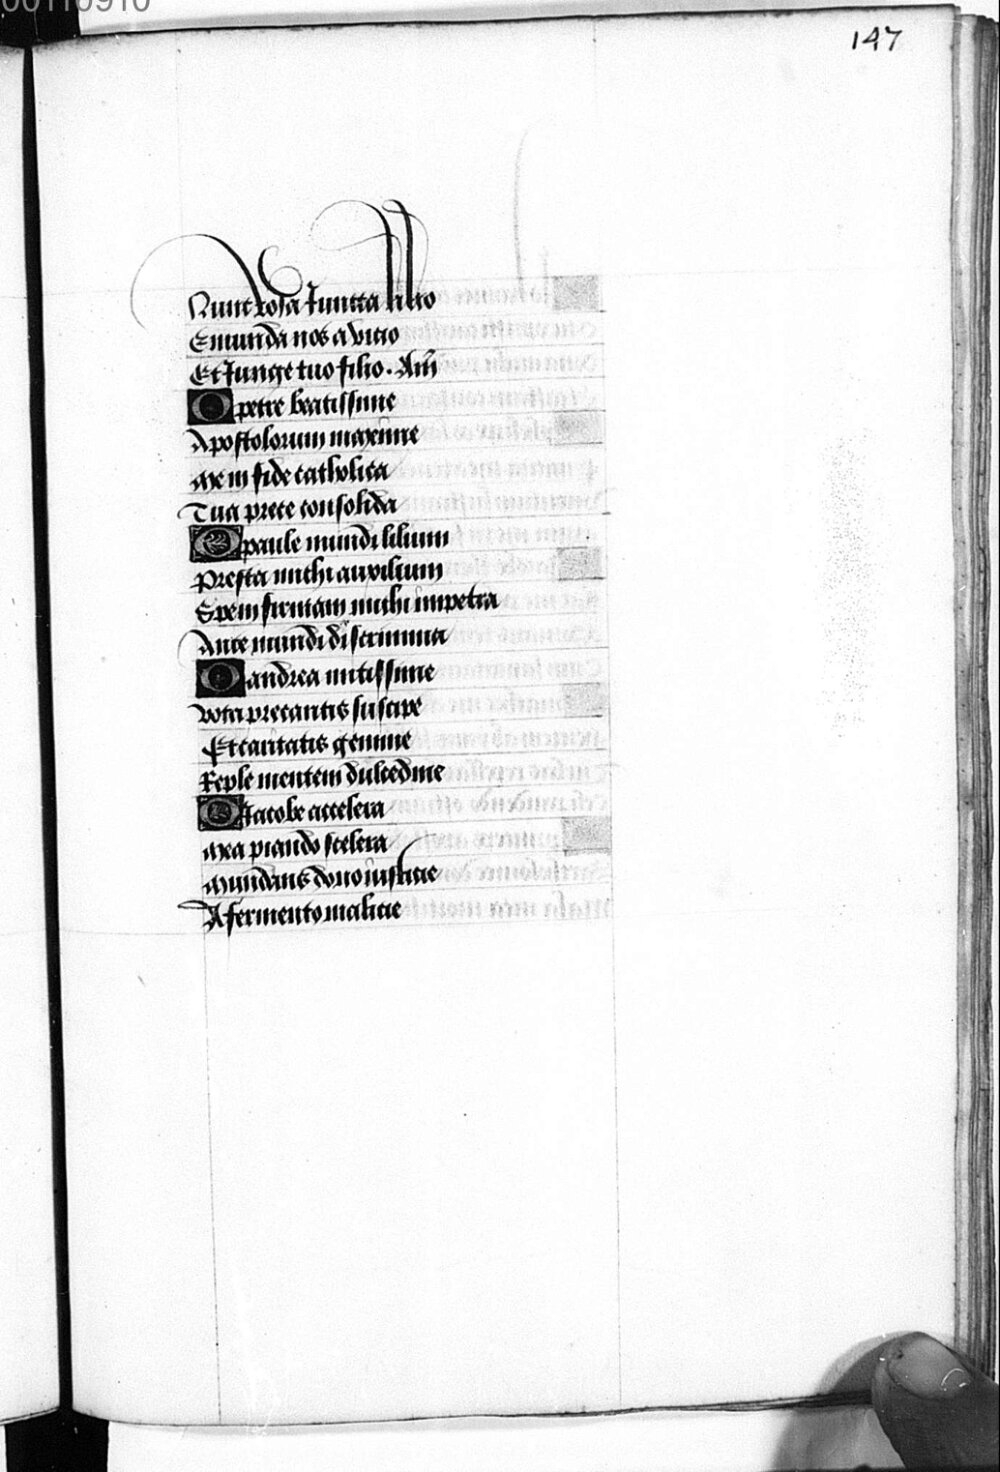 00110910
147
Nunc rosa iuncta lilio
Emunda nos a vicio
Et iunge tuo filio. Am̃
O petre beatissime
Apostolorum maxime
Me in fide catholica
Tua prece consolida
O paule mundi lilium
Presta michi auxilium
Spem firmam michi impetra
Ante mundi discrimina
O andrea mitissime
Vota precantis suscipe
Et caritatis gemine
Reple mentem dulcedine
O Jacobe accelera
Mea piando scelera
Mundans dono iusticie
A fermento malicie